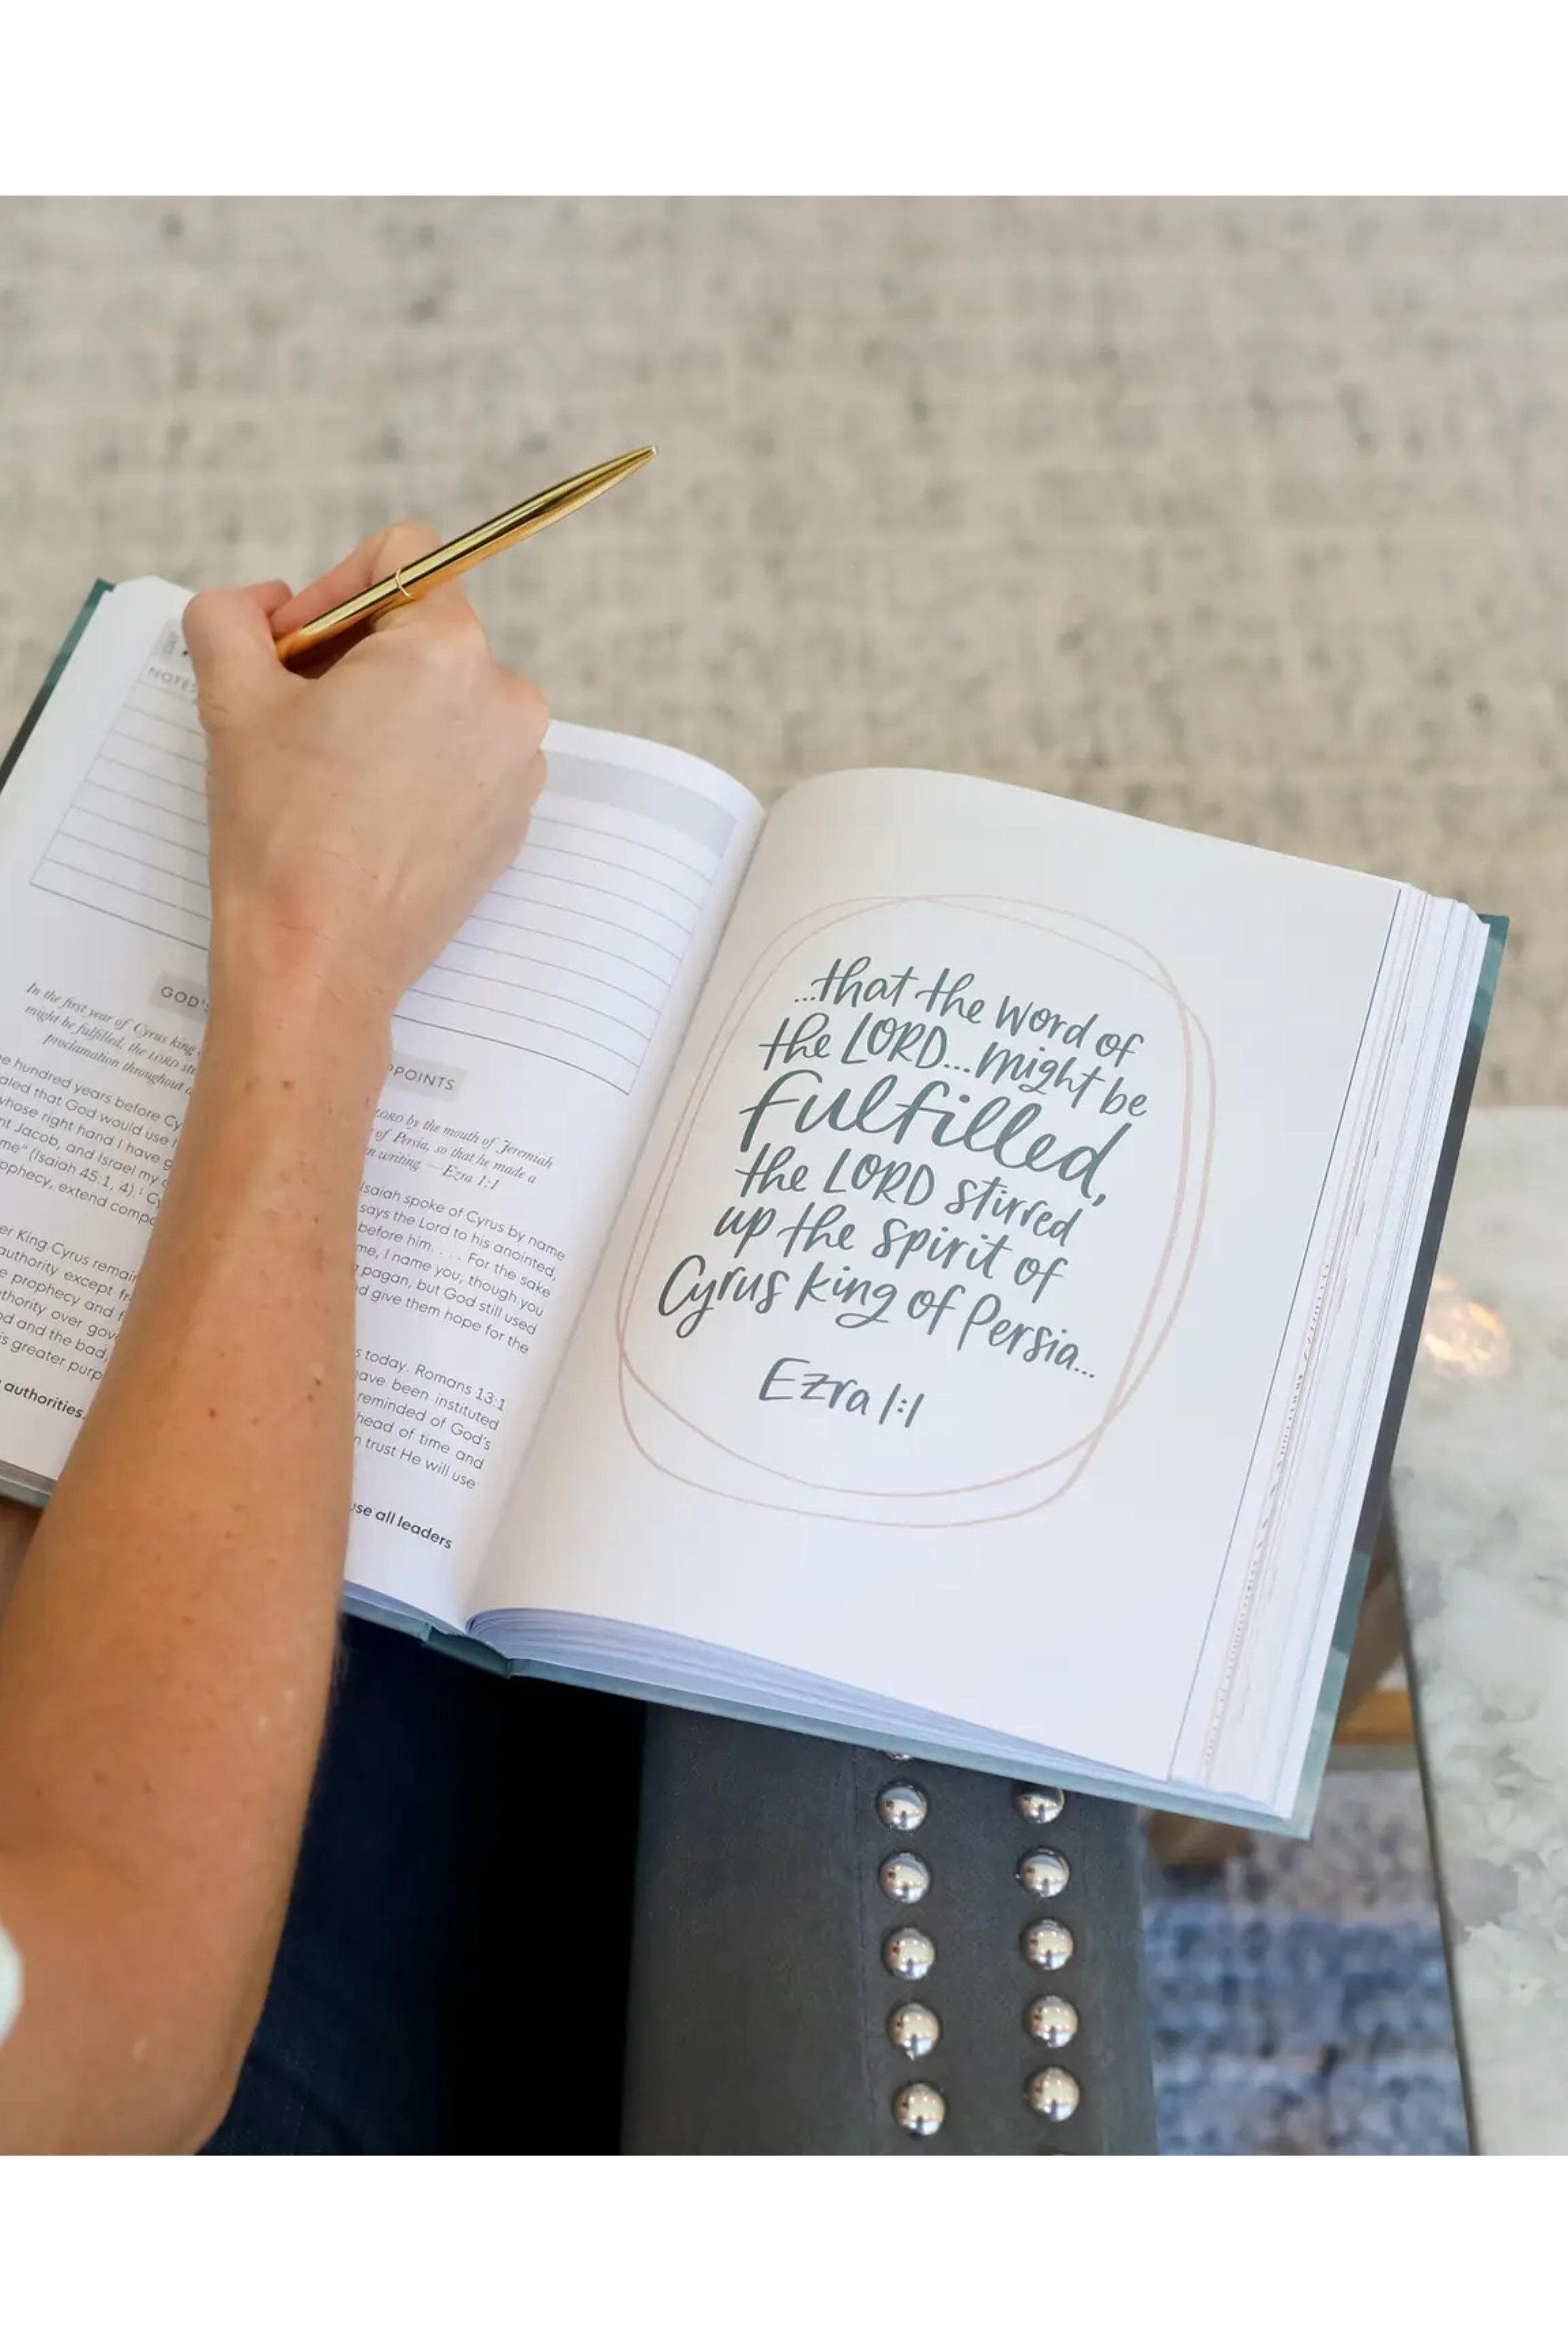 NOTES
GOD'S
PPOINTS
In the first year of Cyrus king
LORD by the mouth of Jeremiah
might be fulfilled, the LORD
of Persia, so that he made a
proclamation throughout
writing — Ezra 1:1
hundred years before
Isaiah spoke of Cyrus by name
that God would use
says the Lord to his anointed,
whose right hand I have
before him. . . . For the sake
Jacob, and Israel my
me, I name you, though you
me" (Isaiah 45:1, 4).¹
pagan, but God still used
extend
give them hope for the
King Cyrus
today. Romans 13:1
authority except
have been instituted
prophecy and
reminded of God's
over
head of time and
and the bad,
trust He will use
greater
authorities.
use all leaders
...that the word of
the LORD...might be
fulfilled,
the LORD stirred
up the spirit of
Cyrus king of Persia...
Ezra 1:1